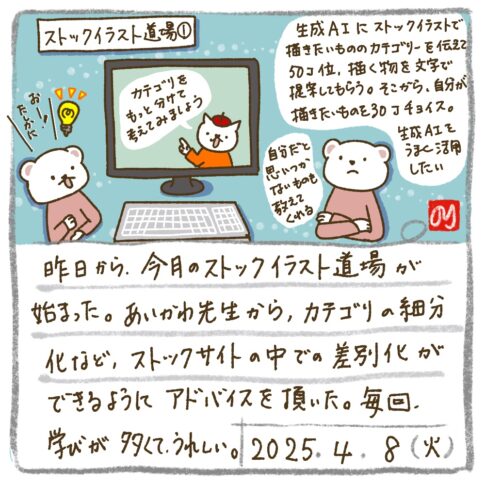 ストックイラスト道場①
おーっ
たしかに
カテゴリを
もっと分けて
考えてみましょう
生成AIにストックイラストで
描きたいもののカテゴリーを伝えて
50コ位、描く物を文字で
提案してもらう。そこから、自分が
描きたいものを30コチョイス。
自分だと
思いつか
ないものも
教えて
くれる
生成AIを
うまく活用
したい
昨日から、今月のストックイラスト道場が
始まった。あいかわ先生から、カテゴリの細分
化など、ストックサイトの中での差別化が
できるようにアドバイスを頂いた。毎回、
学びが多くて、うれしい。
2025.4.8(火)